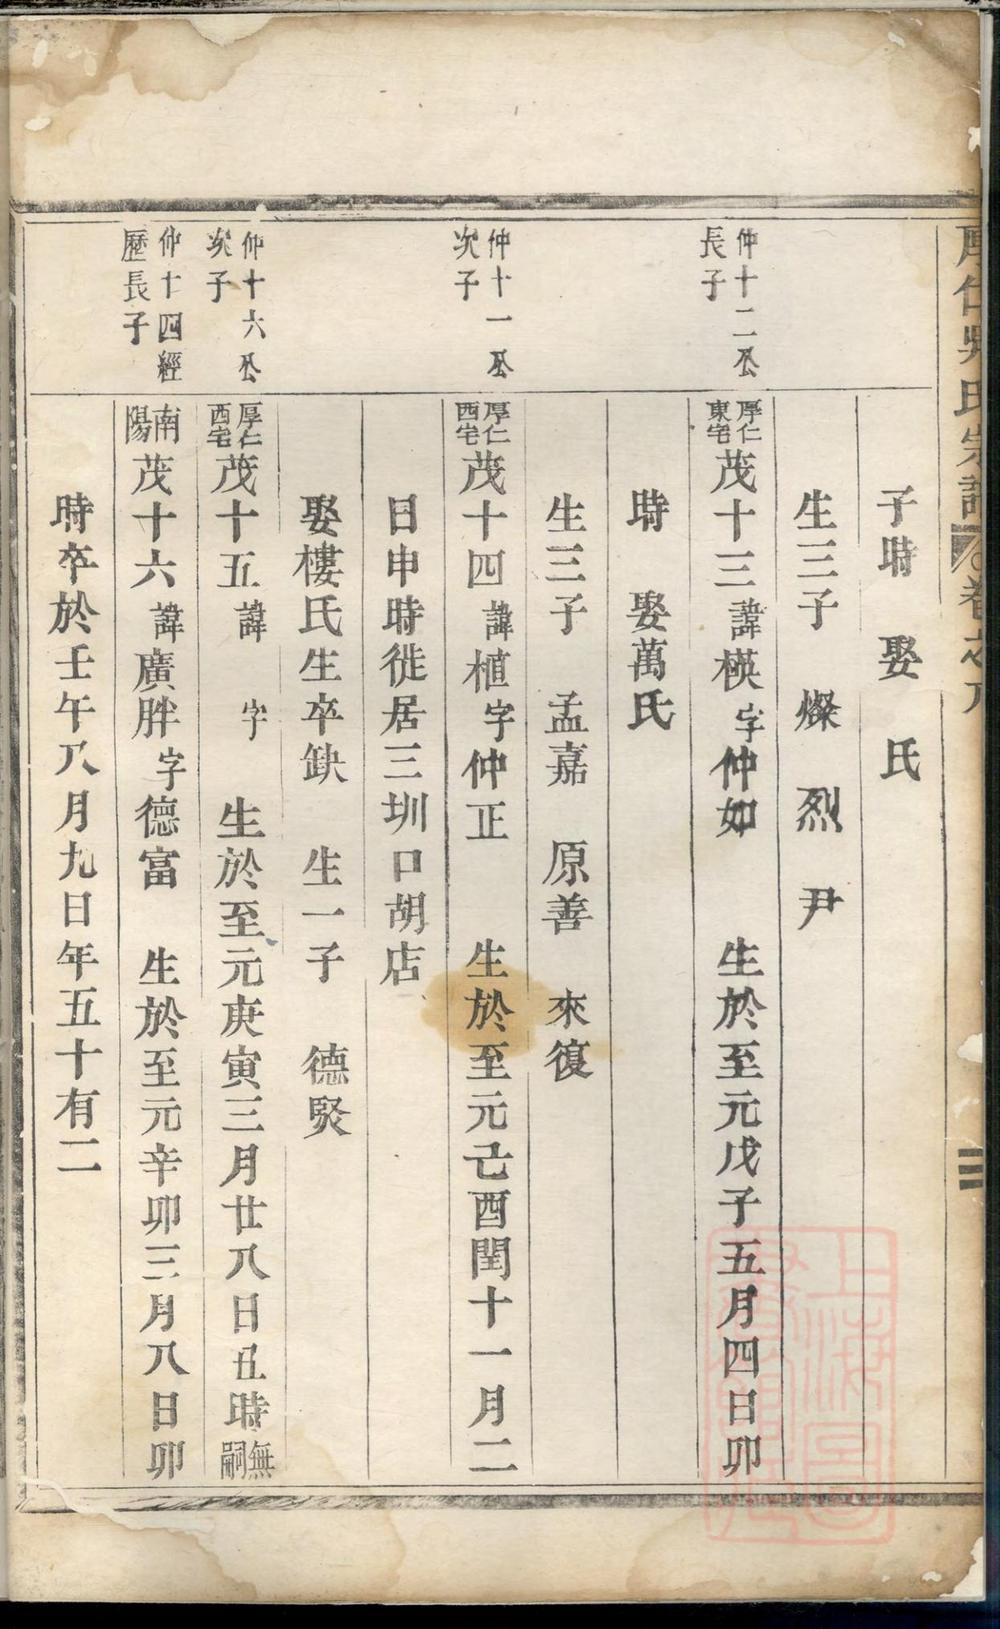 厚仁吳氏宗譜 卷之八 三
子時 娶 氏
生三子 燦 烈 尹
仲十二公長子
厚仁東宅茂十三諱模字仲如 生於至元戊子五月四日卯
時 娶萬氏
生三子 孟嘉 原善 來復
仲十一公次子
厚仁西宅茂十四諱植字仲正 生於至元己酉閏十一月二
日申時徙居三圳口胡店
娶樓氏生卒缺 生一子 德賢
仲十六公次子
厚仁西宅茂十五諱 字 生於至元庚寅三月廿八日丑時無嗣
仲十四經歷長子
南陽茂十六諱廣胖字德富 生於至元辛卯三月八日卯
時卒於壬午八月九日年五十有二
上海圖書館藏